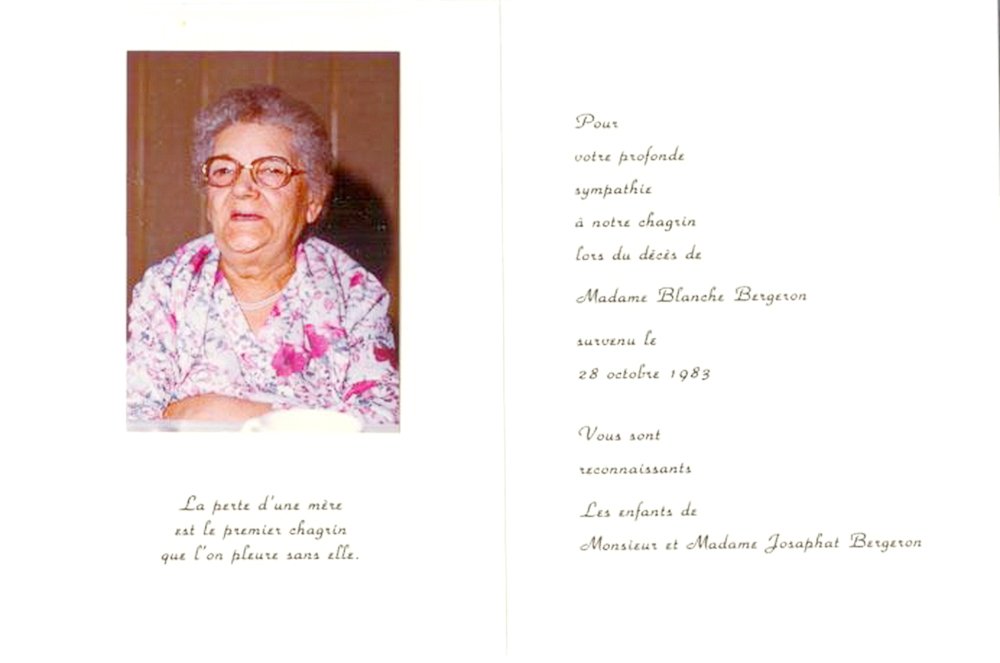 La perte d'une mère
est le premier chagrin
que l'on pleure sans elle.
Pour
votre profonde
sympathie
à notre chagrin
lors du décès de
Madame Blanche Bergeron
survenu le
28 octobre 1983
Vous sont
reconnaissants
Les enfants de
Monsieur et Madame Josaphat Bergeron